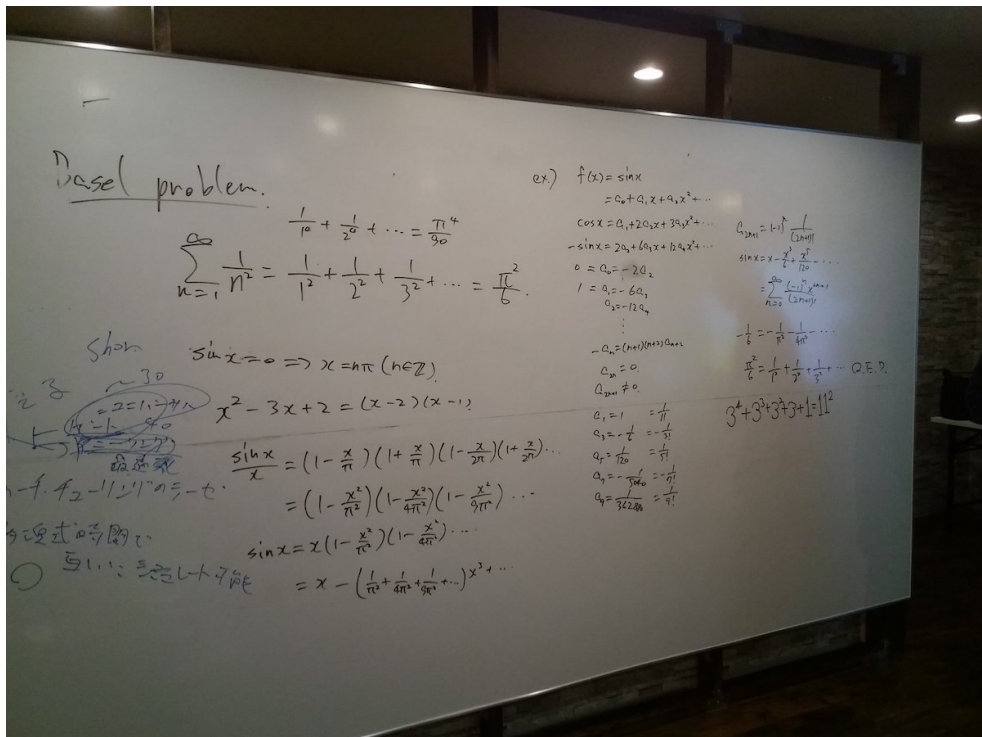 Basel problem.
1/1⁴ + 1/2⁴ + ... = π⁴/90
∞∑n=1 1/n² = 1/1² + 1/2² + 1/3² + ... = π²/6.
sin x = 0 => x = nπ (n∈ℤ)
x² - 3x + 2 = (x-2)(x-1)
sin x/x = (1 - x/π)(1 + x/π)(1 - x/2π)(1 + x/2π)...
= (1 - x²/π²)(1 - x²/4π²)(1 - x²/9π²)...
sin x = x(1 - x²/π²)(1 - x²/4π²)...
= x - (1/π² + 1/4π² + 1/9π² + ...)x³ + ...
shor
~30
ex.) f(x) = sin x
= a₀ + a₁x + a₂x² + ...
cos x = a₁ + 2a₂x + 3a₃x² + ...
-sin x = 2a₂ + 6a₃x + 12a₄x² + ...
0 = a₀ = -2a₂
1 = a₁ = -6a₃
a₂ = -12a₄
⋮
-aₙ = (n+1)(n+2)aₙ₊₂
a₂ₙ = 0.
a₂ₙ₊₁ ≠ 0.
a₁ = 1 = 1/1!
a₃ = -1/6 = -1/3!
a₅ = 1/120 = 1/5!
a₇ = -1/5040 = -1/7!
a₉ = 1/362880 = 1/9!
a₂ₙ₊₁ = (-1)ⁿ 1/(2n+1)!
sin x = x - x³/6 + x⁵/120 - ...
= ∞∑n=0 (-1)ⁿx²ⁿ⁺¹/(2n+1)!
-1/6 = -1/π² - 1/4π² - ...
π²/6 = 1/1² + 1/2² + 1/3² + ... Q.E.D.
3⁴+3³+3²+3+1=11²